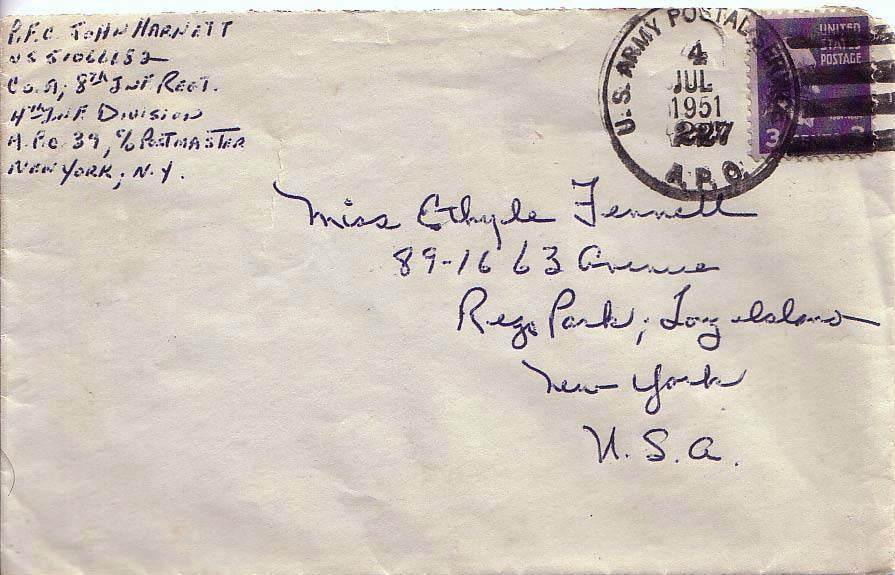 P.F.C. JOHN HARNETT
US 51066182
Co. A, 8th INF REGT.
4th INF DIVISION
A.P.O 39, c/o POSTMASTER
NEW YORK, N.Y.
U.S. ARMY POSTAL SERVICE
4
JUL
1951
227
A.P.O.
UNITED
STATES
POSTAGE
3
Miss Ethyle Fennell
89-16 63 Avenue
Rego Park, Long Island
New York
U.S.A.